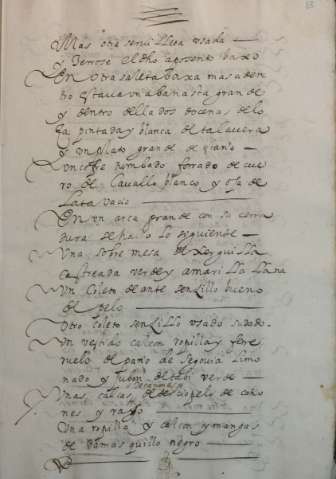 Mas otra servilleta usada
y Cerrose el dho aposento baxo
En otra saleta baxa mas aden
tro estava una banasta grande
y dentro della dos docenas de lo
ça pintada y blanca de talavera
y un plato grande de
Un cofre tumbado forrado de cue
ro de Cavallo blanco y oja de
lata vacio
En un arca grande con su cerra
dura se hallo lo siguiente
Una sobre mesa de xerguilla
verde y amarilla llana
Un Coleto de ante senzillo bueno
de pelo
Otro coleto senzillo usado sudado
Un vestido calçon ropilla y ferre
ruelo de paño de Segovia limo
nado y jubon de verde
Unas calças de terciopelo de caño
nes y raso
Una ropilla y calçon y mangas
de damasquillo negro